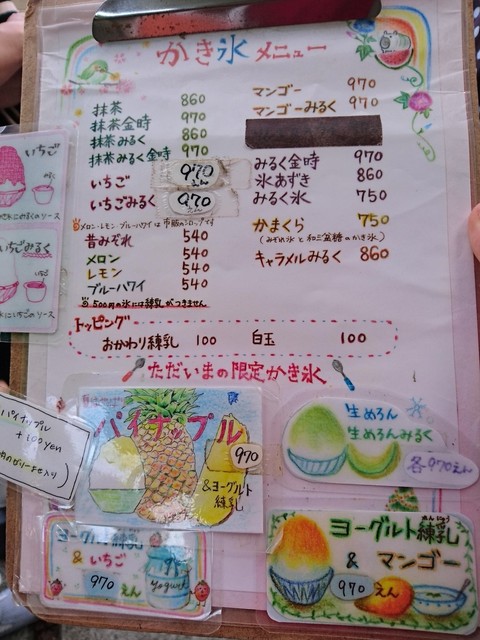 かき氷メニュー
抹茶 860
抹茶金時 970
抹茶みるく 860
抹茶みるく金時 970
いちご 970えん
いちごみるく 970えん
メロン・レモン ブルーハワイは市販のシロップです
昔みぞれ 540
メロン 540
レモン 540
ブルーハワイ 540
500円の氷には練乳がつきません
マンゴー 970
マンゴーみるく 970
みるく金時 970
氷あずき 860
みるく氷 750
かまくら 750
(みぞれ氷と和三盆糖のかき氷)
キャラメルみるく 860
トッピング
おかわり練乳 100 白玉 100
ただいまの限定かき氷
いちご
のソース
いちごみるく
いちごのソース
パイナップル
+100yen
パイナップル
970
&ヨーグルト
練乳
生めろん
生めろんみるく
各970えん
ヨーグルト練乳
&いちご
970えん
Yogurt
ヨーグルト練乳
&マンゴー
970えん